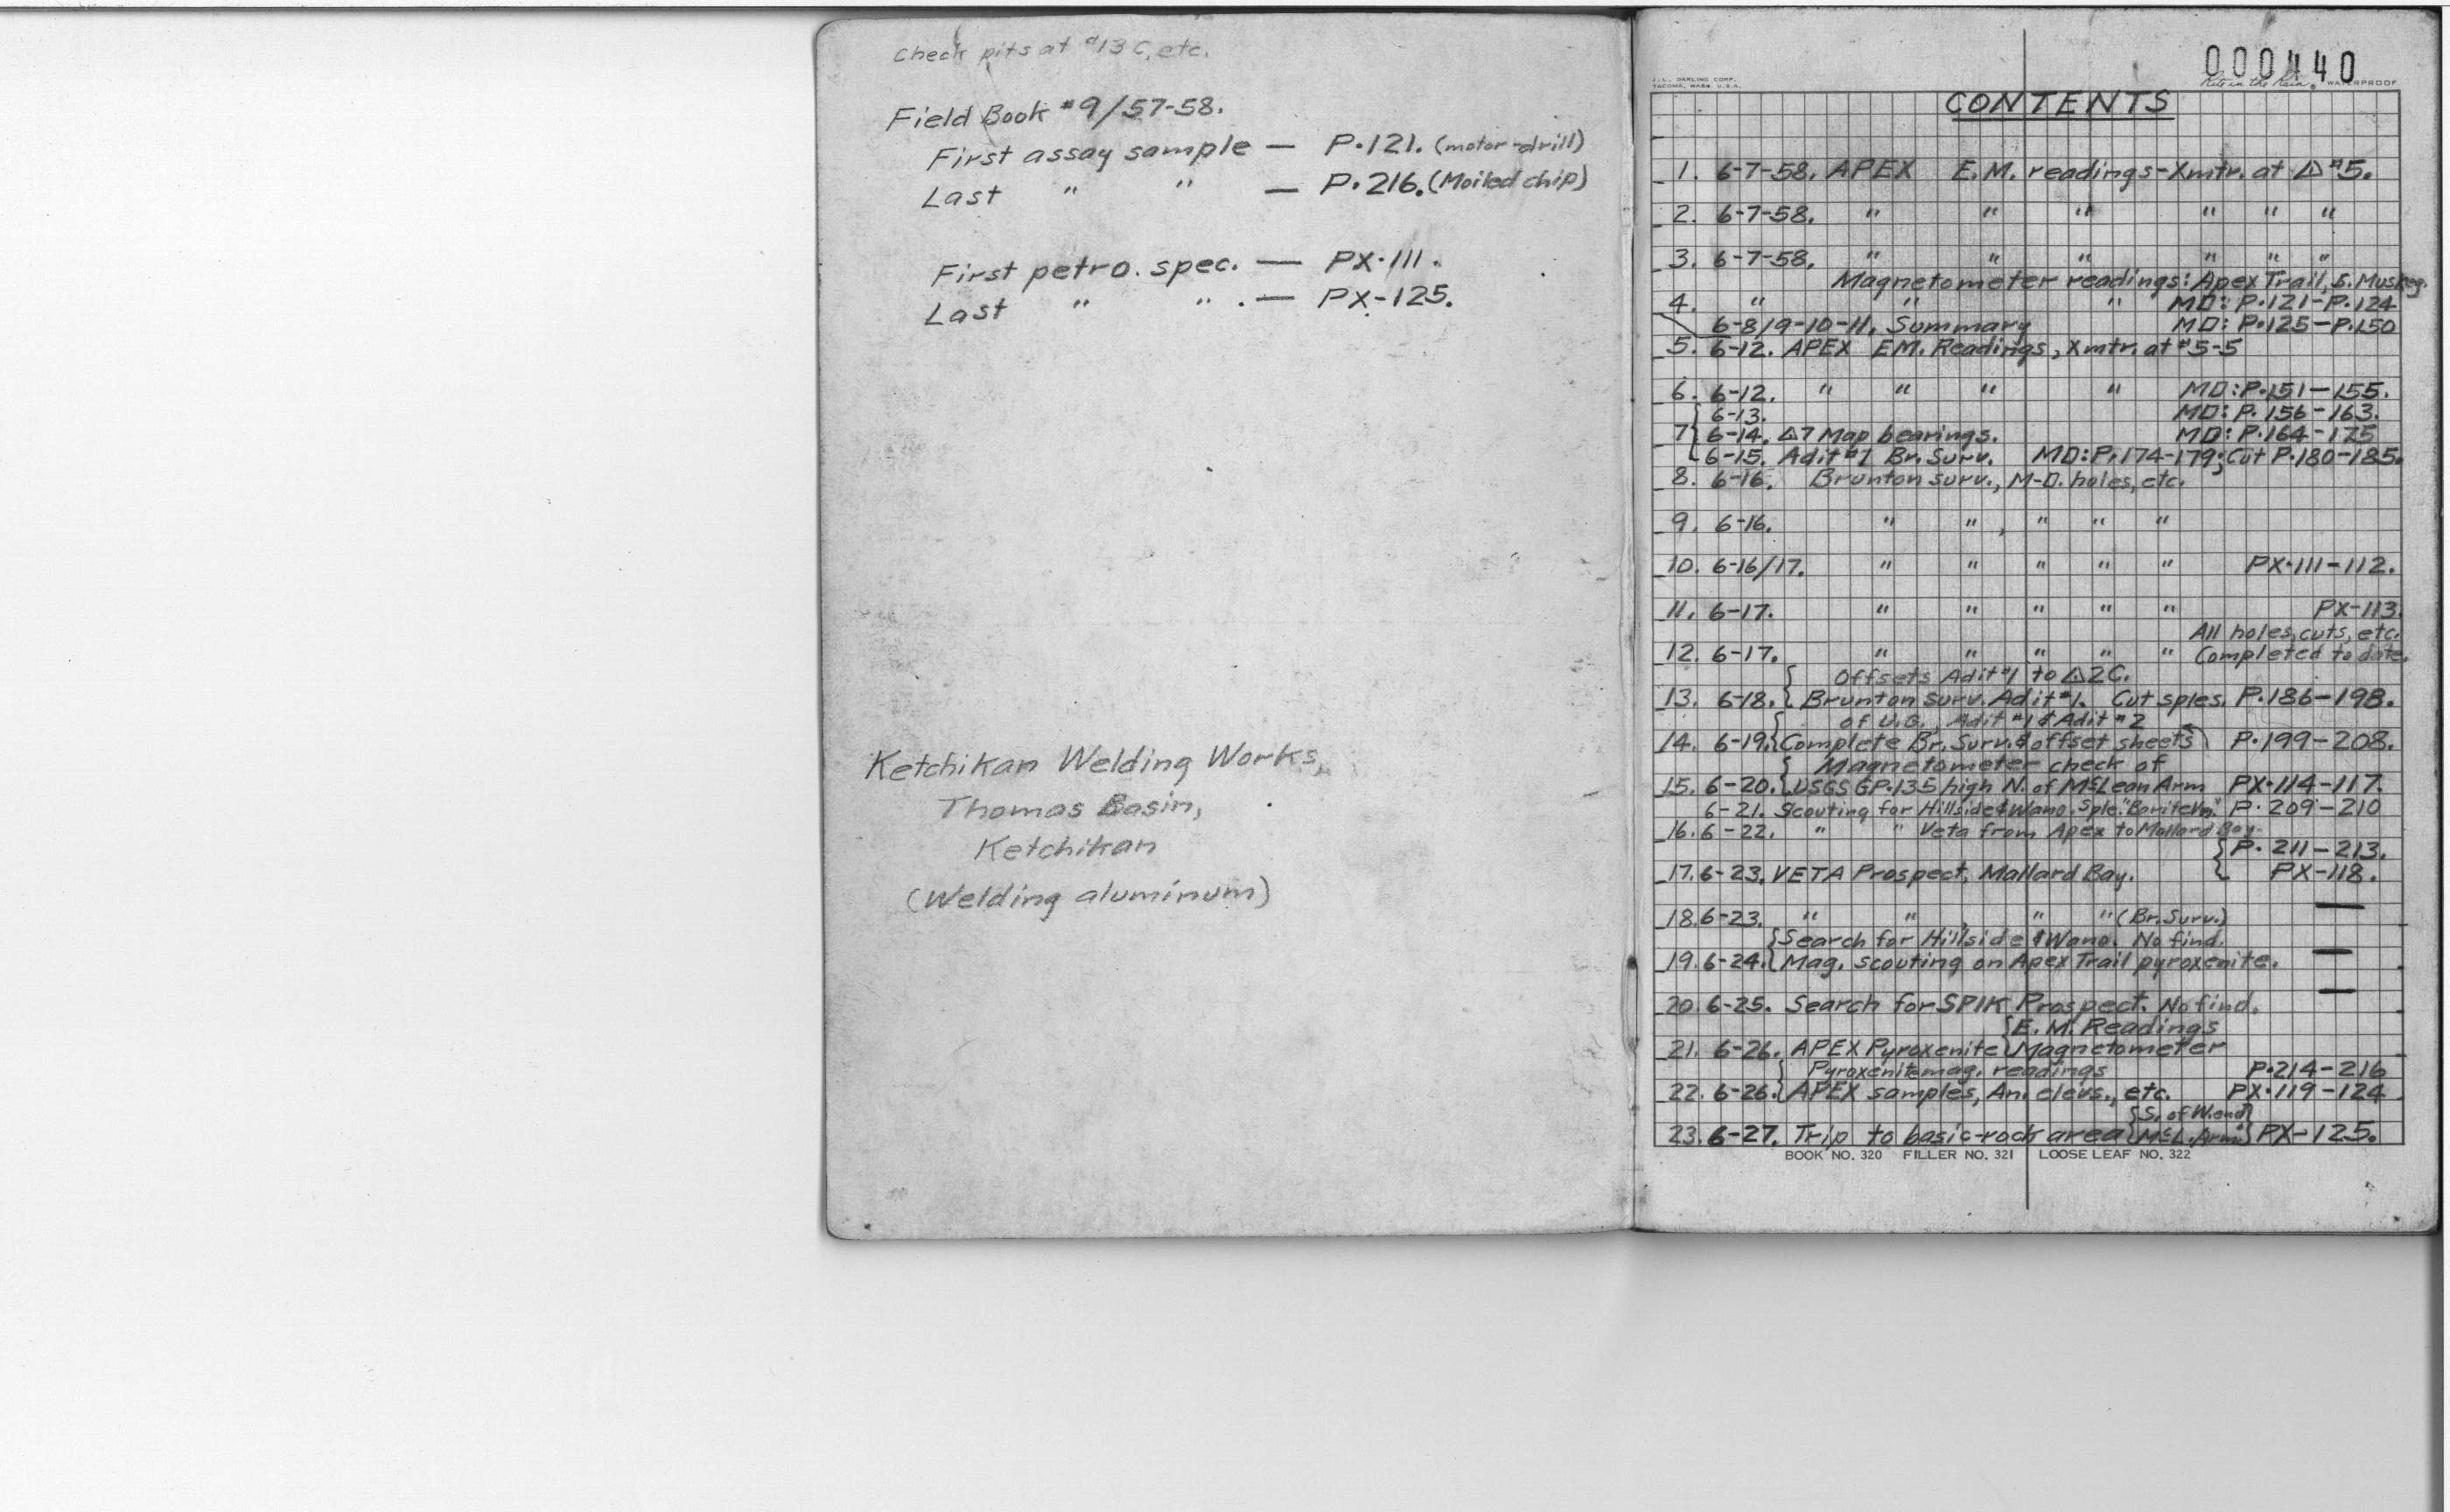 Check pits at #13 C, etc.
Field Book #9/57-58.
First assay sample — P.121. (motor-drill)
Last " " — P.216. (Moiled chip)
First petro. spec. — PX.111.
Last " " . — PX-125.
Ketchikan Welding Works,
Thomas Basin,
Ketchikan
(Welding aluminum)
000440
J. L. DARLING CORP.
TACOMA, WASH. U.S.A.
Rite in the Rain WATERPROOF
CONTENTS
1. 6-7-58. APEX E.M. readings-Xmtr. at △ #5.
2. 6-7-58. " " " " " "
3. 6-7-58. " " " " " "
Magnetometer readings: Apex Trail, S. Muskeg.
4. " " " MD: P.121-P.124
6-8/9-10-11. Summary MD: P.125-P.150
5. 6-12. APEX EM. Readings, Xmtr. at #5-5
6. 6-12. " " " " MD: P.151-155.
6-13. MD: P. 156-163.
7{ 6-14. △7 Map bearings. MD: P.164-175
6-15. Adit #1 Br. Surv. MD: P.174-179; Cut P.180-185.
8. 6-16. Brunton surv., M-D. holes, etc.
9. 6-16. " " , " " "
10. 6-16/17. " " " " " PX.111-112.
11. 6-17. " " " " " PX-113.
All holes, cuts, etc.
12. 6-17. " " " " " Completed to date.
{ Offsets Adit #1 to △2C.
13. 6-18. { Brunton surv. Adit #1. Cut sples. P.186-198.
{ of U.G., Adit #1 & Adit #2
14. 6-19. { Complete Br. Surv. & offset sheets P.199-208.
{ Magnetometer check of
15. 6-20. { USGS GP.135 high N. of McLean Arm PX.114-117.
6-21. Scouting for Hillside & Wano. Sple. "Barite Vn." P. 209-210
16. 6-22. " " Veta from Apex to Mallard Bay.
{ P. 211-213.
17. 6-23. VETA Prospect, Mallard Bay. { PX-118.
18. 6-23. " " " " (Br. Surv.) —
{ Search for Hillside & Wano. No find.
19. 6-24. { Mag. scouting on Apex Trail pyroxenite. —
20. 6-25. Search for SPIK Prospect. No find. —
{ E. M. Readings
21. 6-26. APEX Pyroxenite { Magnetometer
{ Pyroxenite mag. readings P.214-216
22. 6-26. { APEX samples, An. elevs., etc. PX.119-124
{ S. of W. end }
23. 6-27. Trip to basic-rock area { McL. Arm. } PX-125.
BOOK NO. 320 FILLER NO. 321 LOOSE LEAF NO. 322